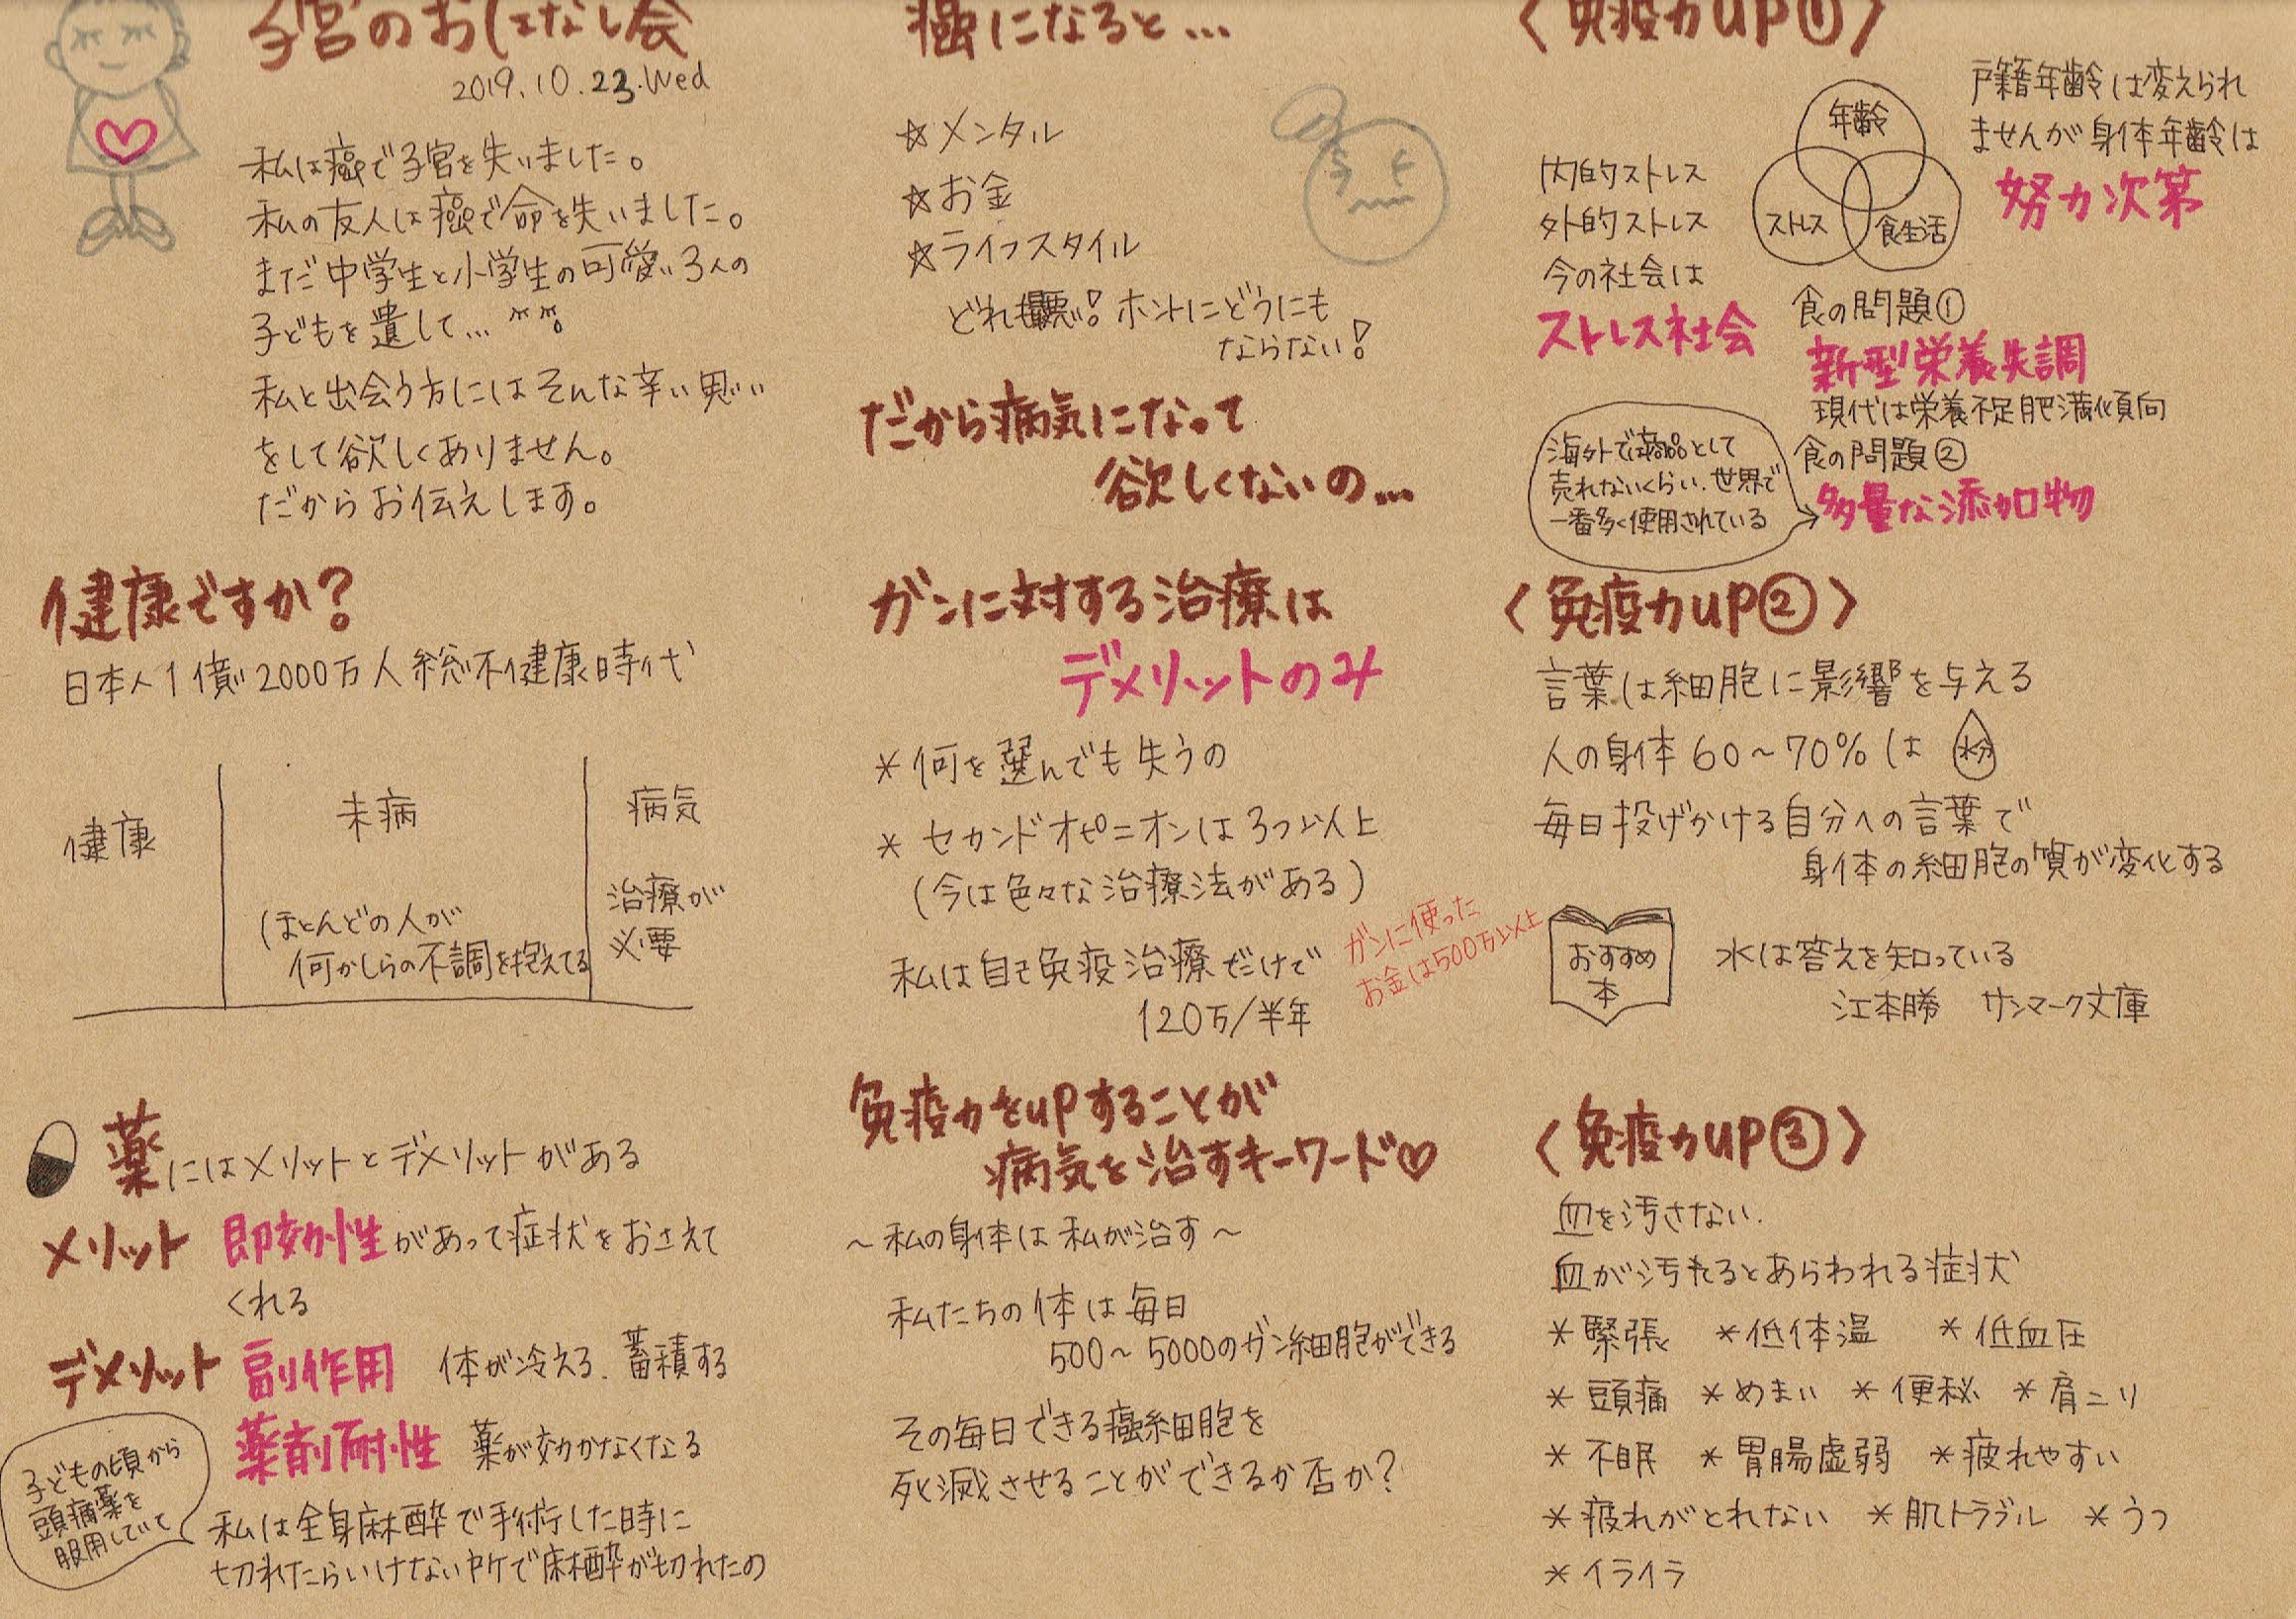 子宮のおはなし会
2019.10.23.Wed
私は癌で子宮を失いました。
私の友人は癌で命を失いました。
まだ中学生と小学生の可愛い3人の
子どもを遺して…
私と出会う方にはそんな辛い思い
をして欲しくありません。
だからお伝えします。
健康ですか?
日本人1億2000万人総不健康時代
健康
未病
病気
ほとんどの人が
何かしらの不調を抱えてる
治療が
必要
薬にはメリットとデメリットがある
メリット 即効性があって症状をおさえて
くれる
デメリット 副作用 体が冷える、蓄積する
薬剤耐性 薬が効かなくなる
子どもの頃から
頭痛薬を
服用していて
私は全身麻酔で手術した時に
切れたらいけないトケで麻酔が切れたの
癌になると…
☆メンタル
☆お金
☆ライフスタイル
どれも最悪! ホントにどうにも
ならない!
だから病気になって
欲しくないの…
ガンに対する治療は
デメリットのみ
*何を選んでも失うの
*セカンドオピニオンは3つ以上
(今は色々な治療法がある)
私は自己免疫治療だけで
120万/半年
ガンに使った
お金は500万以上
免疫力をupすることが
病気を治すキーワード♡
~私の身体は私が治す~
私たちの体は毎日
500~5000のガン細胞ができる
その毎日できる癌細胞を
死滅させることができるか否か?
〈免疫力UP①〉
年齢
ストレス
食生活
戸籍年齢は変えられ
ませんが身体年齢は
努力次第
内的ストレス
外的ストレス
今の社会は
ストレス社会
食の問題①
新型栄養失調
現代は栄養不足肥満傾向
食の問題②
多量な添加物
海外では商品として
売れないくらい、世界で
一番多く使用されている
〈免疫力UP②〉
言葉は細胞に影響を与える
人の身体60~70%は 水分
毎日投げかける自分への言葉で
身体の細胞の質が変化する
おすすめ
本
水は答えを知っている
江本勝 サンマーク文庫
〈免疫力UP③〉
血を汚さない.
血が汚れるとあらわれる症状
*緊張 *低体温 *低血圧
*頭痛 *めまい *便秘 *肩こり
*不眠 *胃腸虚弱 *疲れやすい
*疲れがとれない *肌トラブル *うつ
*イライラ